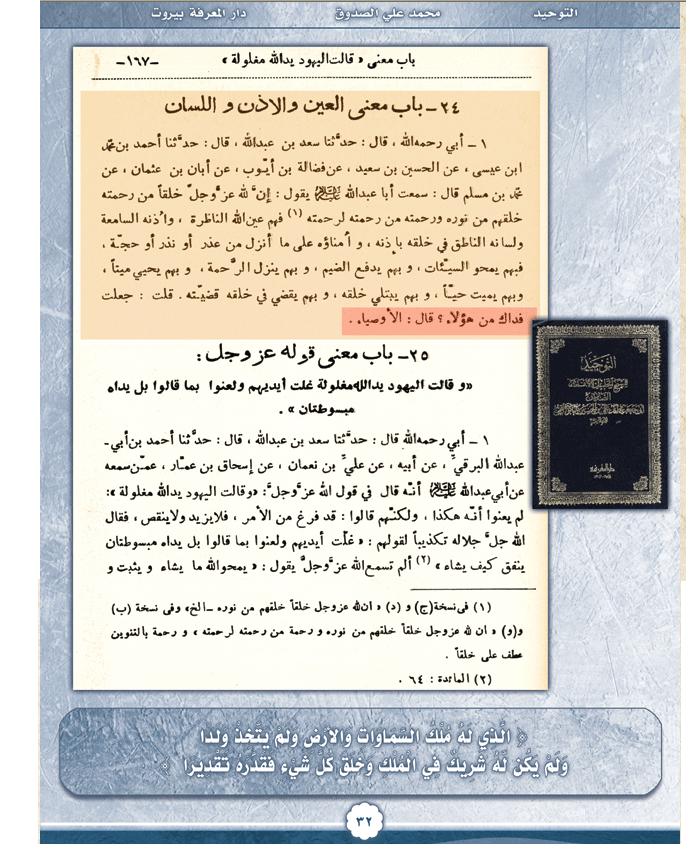 التوحيد محمد علي الصدوق دار المعرفة بيروت
باب معنى « قالت اليهود يدالله مغلولة » -١٦٧-
٢٤ ـ باب معنى العين والاذن و اللسان
١ ـ أبي رحمه‌الله ، قال : حدَّثنا سعد بن عبدالله ، قال : حدَّثنا أحمد بن‌محمد
ابن عيسى ، عن الحسين بن سعيد ، عن‌فضالة بن أيّوب ، عن أبان بن عثمان ، عن
محمد بن مسلم قال : سمعت أبا عبدالله عليه السلام يقول : إنَّ لله عزَّوجلَّ خلقاً من رحمته
خلقهم من نوره ورحمته من رحمته لرحمته (١) فهم عين‌الله الناظرة ، واُذنه السامعة
ولسانه الناطق في خلقه بإذنه ، واُمناؤه على ما أنزل من عذر أو نذر أو حجّة ،
فبهم يمحو السيّئات ، و بهم يدفع الضيم ، و بهم ينزل الرَّحمة ، و بهم يحيي ميتاً ،
وبهم يميت حيّاً ، و بهم يبتلي خلقه ، و بهم يقضي في خلقه قضيّته . قلت : جعلت
فداك من هؤلاء ؟ قال : الأوصياء .
٢٥ـ باب معنى قوله عزوجل :
«و قالت اليهود يدالله‌مغلولة غلت أيديهم ولعنوا بما قالوا بل يداه
مبسوطتان » .
١ ـ أبي رحمه‌الله قال : حدَّثنا سعد بن عبدالله ، قال : حدَّثنا أحمد بن‌أبي‌ـ
عبدالله البرقيِّ ، عن أبيه ، عن عليِّ بن نعمان ، عن إسحاق بن عمّار ، عمّن‌سمعه
عن‌أبي‌عبدالله عليه السلام أنّه قال في قول الله عزَّوجلَّ: «وقالت اليهود يدالله مغلولة »:
لم يعنوا أنّه هكذا ، ولكنّهم قالوا : قد فرغ من الأمر ، فلايزيد ولاينقص ، فقال
الله جلَّ جلاله تكذيباً لقولهم : « غلّت أيديهم ولعنوا بما قالوا بل يداه مبسوطتان
ينفق كيف يشاء » (٢) ألم تسمع‌الله عزَّوجلَّ يقول : « يمحوالله ما يشاء و يثبت و
(١) في‌نسخة(ج) و (د) « ان‌لله عزوجل خلقاً خلقهم من نوره ـ الخ» وفى نسخة (ب)
و(و) « ان لله عزوجل خلقاً خلقهم من نوره و رحمة من رحمته لرحمته » و رحمة بالتنوين
عطف على خلقاً .
(٢) المائدة : ٦٤ .
التوحيد
الَّذِي لَهُ مُلْكُ السَّمَاوَاتِ وَالأَرْضِ وَلَمْ يَتَّخِذْ وَلَدًا
وَلَمْ يَكُن لَّهُ شَرِيكٌ فِي الْمُلْكِ وَخَلَقَ كُلَّ شَيْءٍ فَقَدَّرَهُ تَقْدِيرًا
٣٢